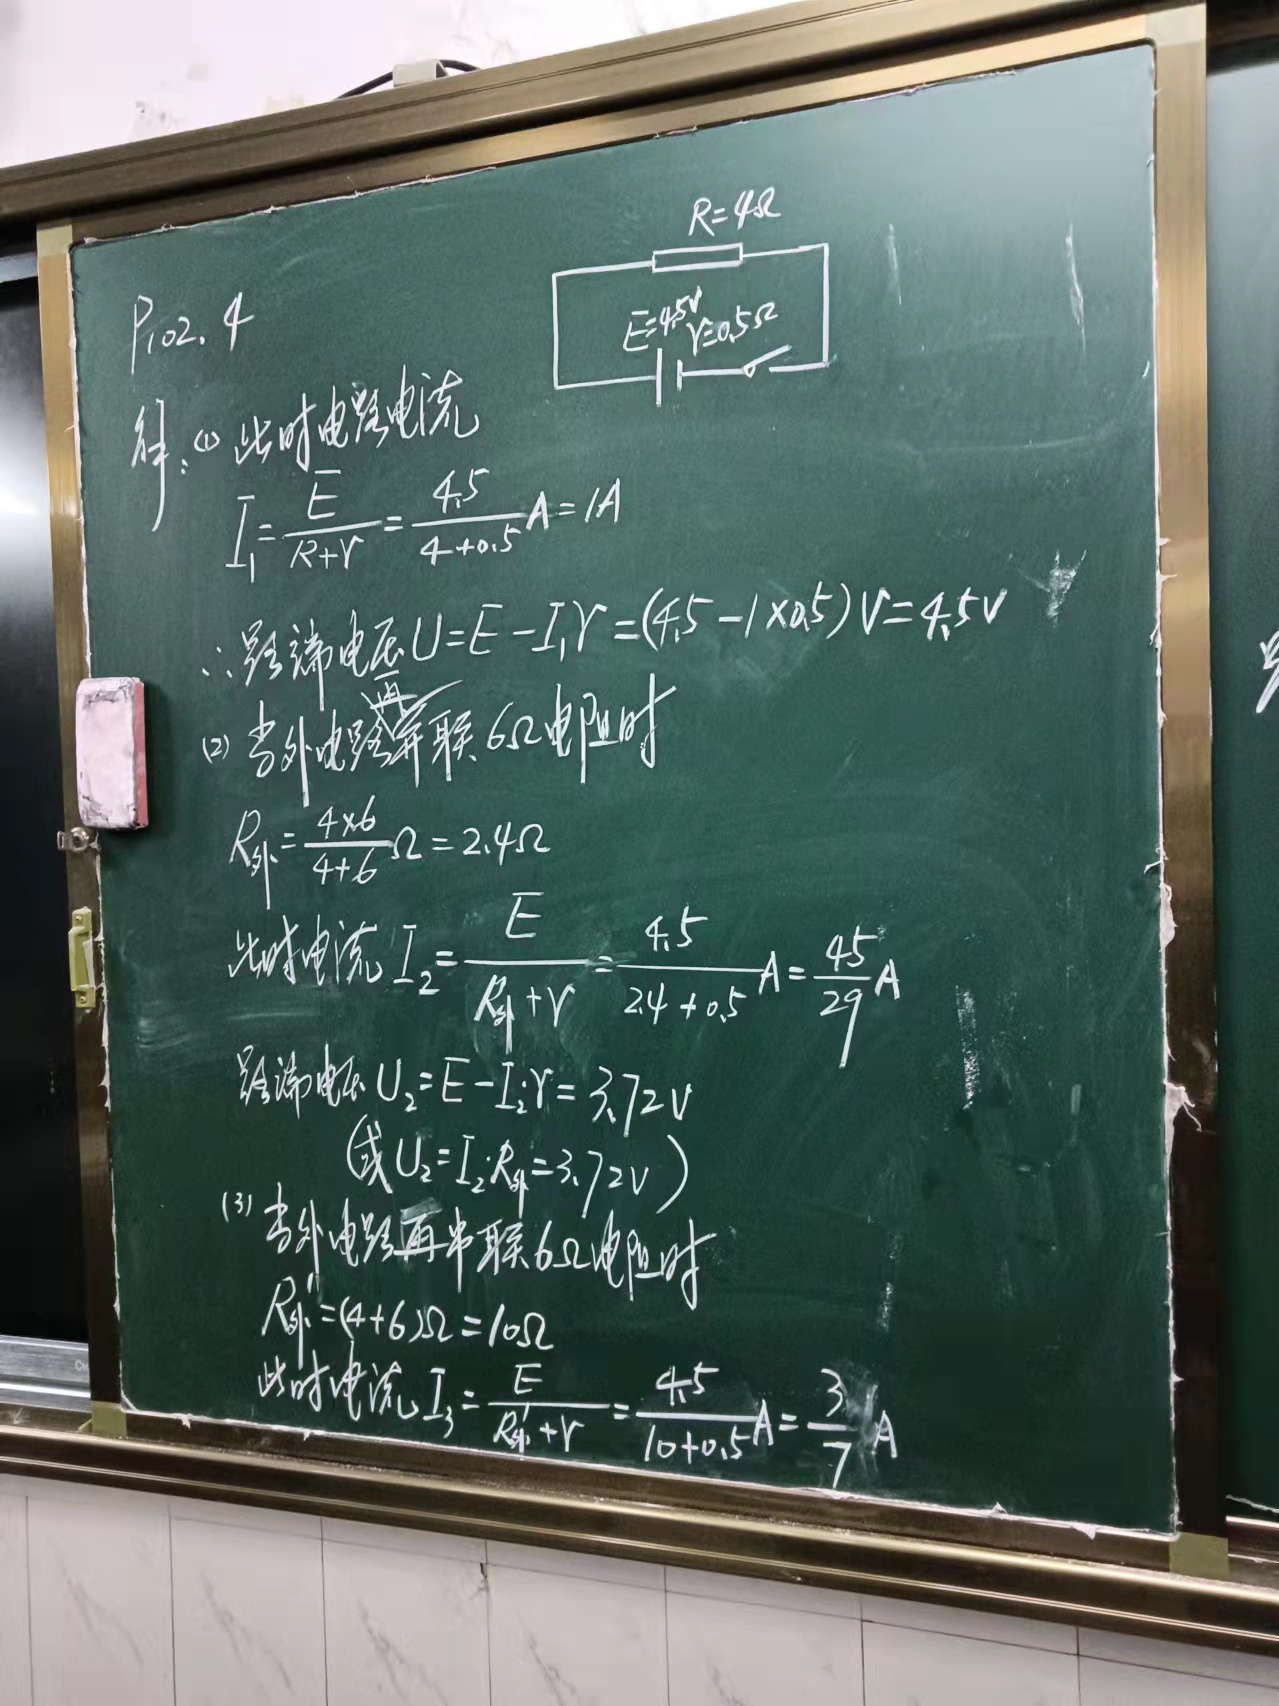 R=4Ω
E=4.5V
r=0.5Ω
P102.4
解:(1)此时电路电流
I₁=E/(R+r)=4.5/(4+0.5)A=1A
∴路端电压U=E-I₁r=(4.5-1×0.5)V=4.5V
再
(2)当外电路并联6Ω电阻时
R外=(4×6)/(4+6)Ω=2.4Ω
此时电流I₂=E/(R外+r)=4.5/(2.4+0.5)A=45/29A
路端电压U₂=E-I₂·r=3.72V
(或U₂=I₂·R外=3.72V)
(3)当外电路再串联6Ω电阻时
R外'=(4+6)Ω=10Ω
此时电流I₃=E/(R外'+r)=4.5/(10+0.5)A=3/7A